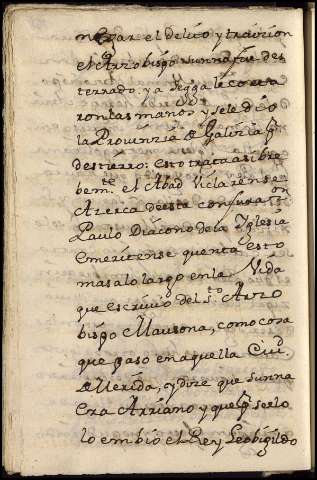 negar el delito y traicion
el Arzobispo sunna fue des
terrado. ya segga le corta
ron las manos y se le dio
la Provinzia de Galizia pʳ
destierro: Esto trata asi bre
bemᵗᵉ. el Abad Viclarense
Azerca de esta conjuraᵒⁿ
Paulo Diacono de la Yglesia
Emeritense quenta esto
mas a lo largo en la Vida
que escrivio del sᵗᵒ Arzo
bispo Mausona, como cosa
que paso en aquella Ciuᵈ.
de Merida, y dize que sunna
Era Arriano y que pʳ serlo
lo embio el Rey Leobigildo